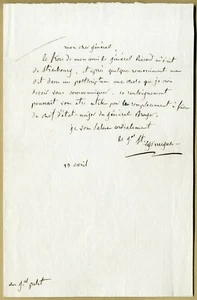 mon cher général
le frère de mon ami le général Ricard vient
de Strasbourg, et après quelque renseignement me
dit dans un postscriptum une chose que je vous
devais vous communiquer, ce renseignement
pourrait vous être utile pour le remplacement à faire
du chef d'état-major du général
je vous salue cordialement
le gal
19 avril
au gal petit